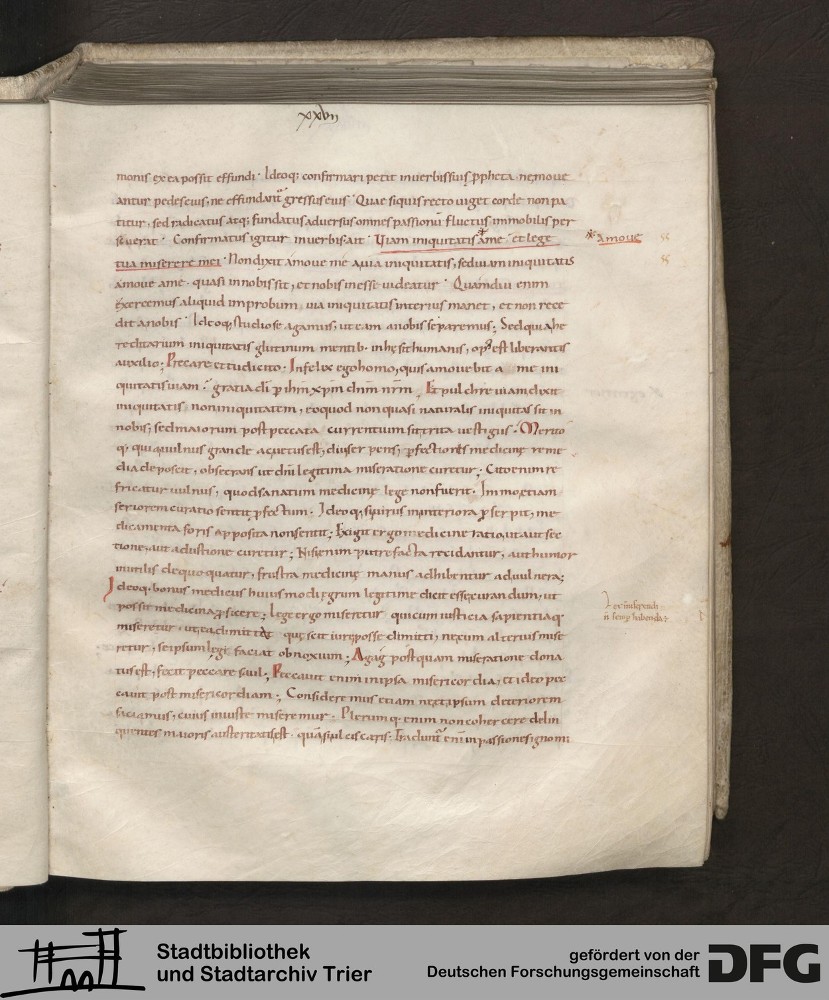 xxvii
monis ex ea possit effundi· Ideoq; confirmari petit in verbis suis ppheta· ne moue
antur pedes eius, ne effundant gressus eius· Quae siquis recto uiget corde non pa
titur, sed radicatus atq; fundatus aduersus omnes passionū fluctus immobilis per
seuerat· Confirmatus igitur in uerbis ait· Uiam iniquitatis a me· et lege
amoue
tua miserere mei· Non dixit amoue me a uia iniquitatis, sed uiam iniquitatis
amoue a me· quasi in nobis sit, et nobis inesse uideatur· Quamdiu enim
exercemus aliquid improbum, uia iniquitatis interius manet, et non rece
dit a nobis· Ideoq; studiose agamus, ut eam a nobis separemus; Sed quia he
reditarium iniquitatis glutinum mentib· inhesit humanis, op' est liberantis
auxilio; Precare et tu dicito· Infelix ego homo, quis amouebit a me ini
quitatis uiam· gratia di p ihm xpm dnm nrm· Et pulchre uiam dixit
iniquitatis, non iniquitatem, eo quod non quasi naturalis iniquitas sit in
nobis, sed maiorum post peccata currentium sit trita uestigiis· Merito
q; qui uulnus grande
dia deposcit, obsecrans ut dni legitima miseratione curetur; Cito enim re
fricatur uulnus, quod sanatum medicine lege non fuerit· Immo etiam
seriorem curatio sentit pfectum· Ideoq; si uirus in interiora pserpit, me
dicamenta foris apposita non sentit; Exigit ergo medicine ratio, ut aut sec
tione, aut adustione curetur; Nisi enim putrefacta recidantur, aut humor
inutilis dequoquatur, frustra medicine manus adhibentur ad uulnera;
Ideoq· bonus medicus huius modi egrum legitime dicit esse curandum, ut
possit medicina pficere; Lege ergo miseretur qui cum iustitia sapientiaq;
miseretur· ut ea dimittat que scit iure posse dimitti, ne cum alterius mise
retur, se ipsum legi faciat obnoxium; Agag postquam miseratione dona
tus est, fecit peccare saul; Peccauit enim in ipsa misericordia, et ideo pec
cauit post misericordiam; Consideremus etiam ne et ipsum deteriorem
faciamus, cuius iniuste miseremur· Plerumq· enim non cohercere delin
quentes maioris austeritatis est· quasi uleiscaris; Tradunt eni in passiones ignomi